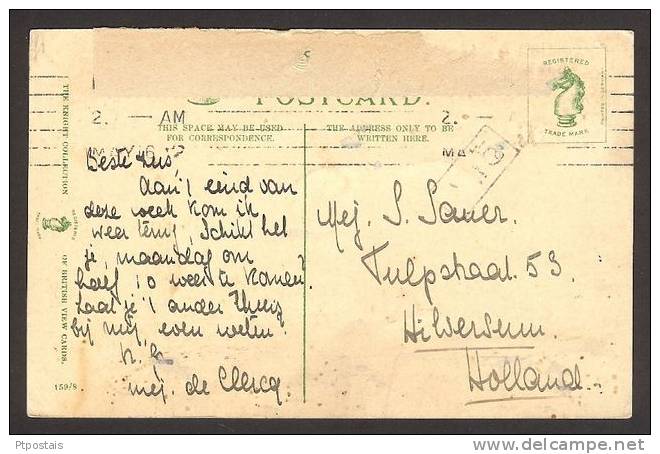 POSTCARD.
2. — AM
2.
THIS SPACE MAY BE USED
FOR CORRESPONDENCE.
THE ADDRESS ONLY TO BE
WRITTEN HERE.
MAY 6
MA
REGISTERED
TRADE MARK
THE KNIGHT COLLECTION
OF BRITISH VIEW CARDS.
159/8
Beste Lus,
Aan't eind van
deze week kom ik
weer terug, Schikt het
je, maandag om
half 10 weer te komen?
Laat je 't ander thuis
bij mij even weten?
mej. de Clercq.
Mej. S. Sauer.
Tulpstraat 53.
Hilversum.
Holland.
Ptpostais
www.delcampe.net